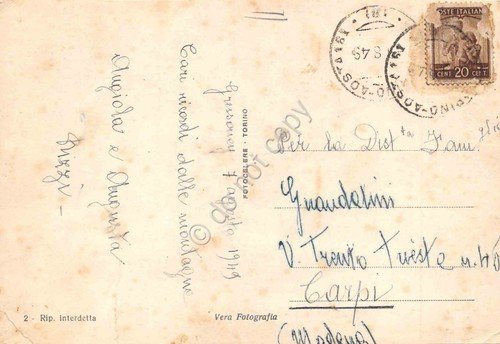 Gressoney 7 agosto 1949
Cari ricordi dalle montagne
Angiola e Augusta
POSTE ITALIANE
CENT. 20 CENT.
TORINO-AOSTA 191
8 49
Per la Dist.ta Fam.glia
Guandalini
V. Trento Trieste n. 40
Carpi
(Modena)
FOTOCELERE - TORINO
2 - Rip. interdetta
Vera Fotografia
do not copy